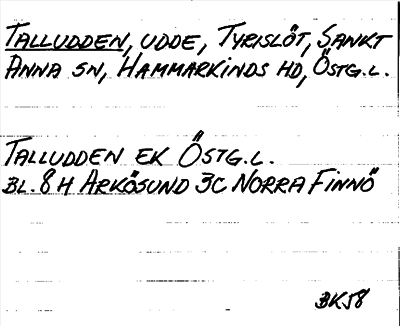 TALLUDDEN, UDDE, TYRISLÖT, SANKT
ANNA SN, HAMMARKINDS HD, ÖSTG.L.
TALLUDDEN EK ÖSTG.L.
BL. 8 H ARKÖSUND 3C NORRA FINNÖ
BK58